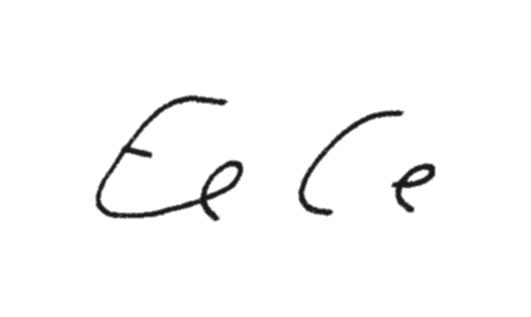 Ee Ce